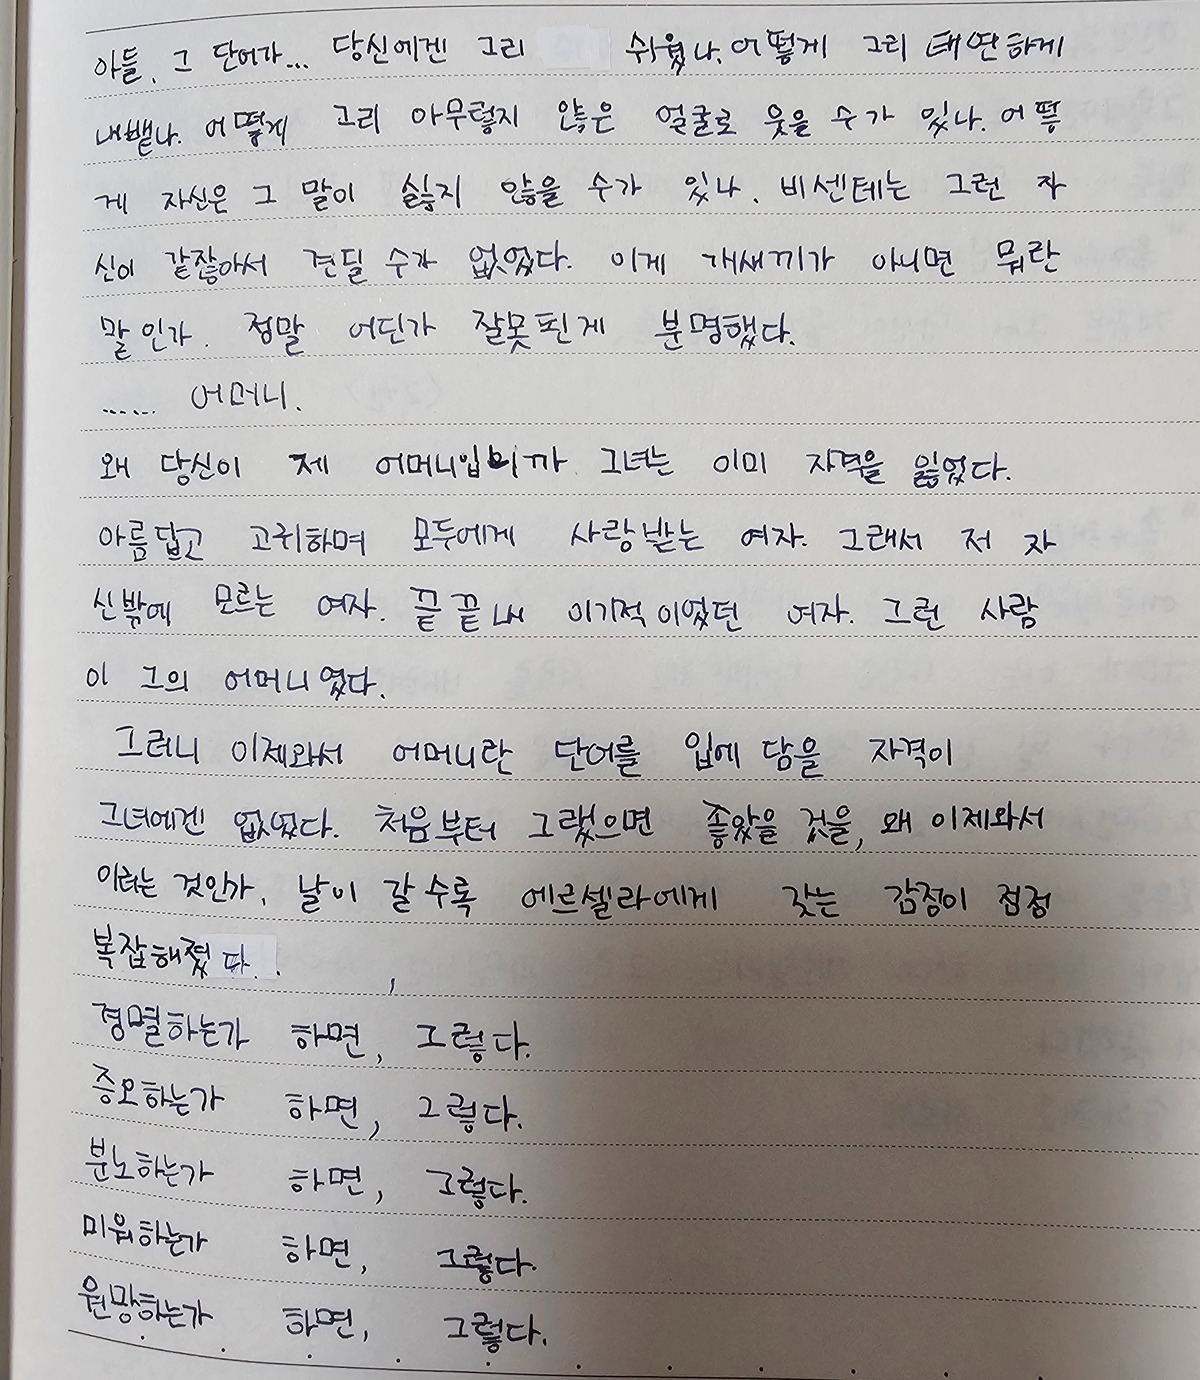 아들, 그 단어가... 당신에겐 그리 쉬웠나. 어떻게 그리 태연하게
내뱉나. 어떻게 그리 아무렇지 않은 얼굴로 웃을 수가 있나. 어떻
게 자신은 그 말이 싫지 않을 수가 있나. 비센테는 그런 자
신이 같잖아서 견딜 수가 없었다. 이게 개새끼가 아니면 뭐란
말인가. 정말 어딘가 잘못된게 분명했다.
...... 어머니.
왜 당신이 제 어머니입니까 그녀는 이미 자격을 잃었다.
아름답고 고귀하며 모두에게 사랑받는 여자. 그래서 저 자
신밖에 모르는 여자. 끝끝내 이기적이었던 여자. 그런 사람
이 그의 어머니였다.
그러니 이제와서 어머니란 단어를 입에 담을 자격이
그녀에겐 없었다. 처음부터 그랬으면 좋았을 것을, 왜 이제와서
이러는 것인가. 날이 갈수록 에르셀라에게 갖는 감정이 점점
복잡해졌다.
경멸하는가 하면, 그렇다.
증오하는가 하면, 그렇다.
분노하는가 하면, 그렇다.
미워하는가 하면, 그렇다.
원망하는가 하면, 그렇다.